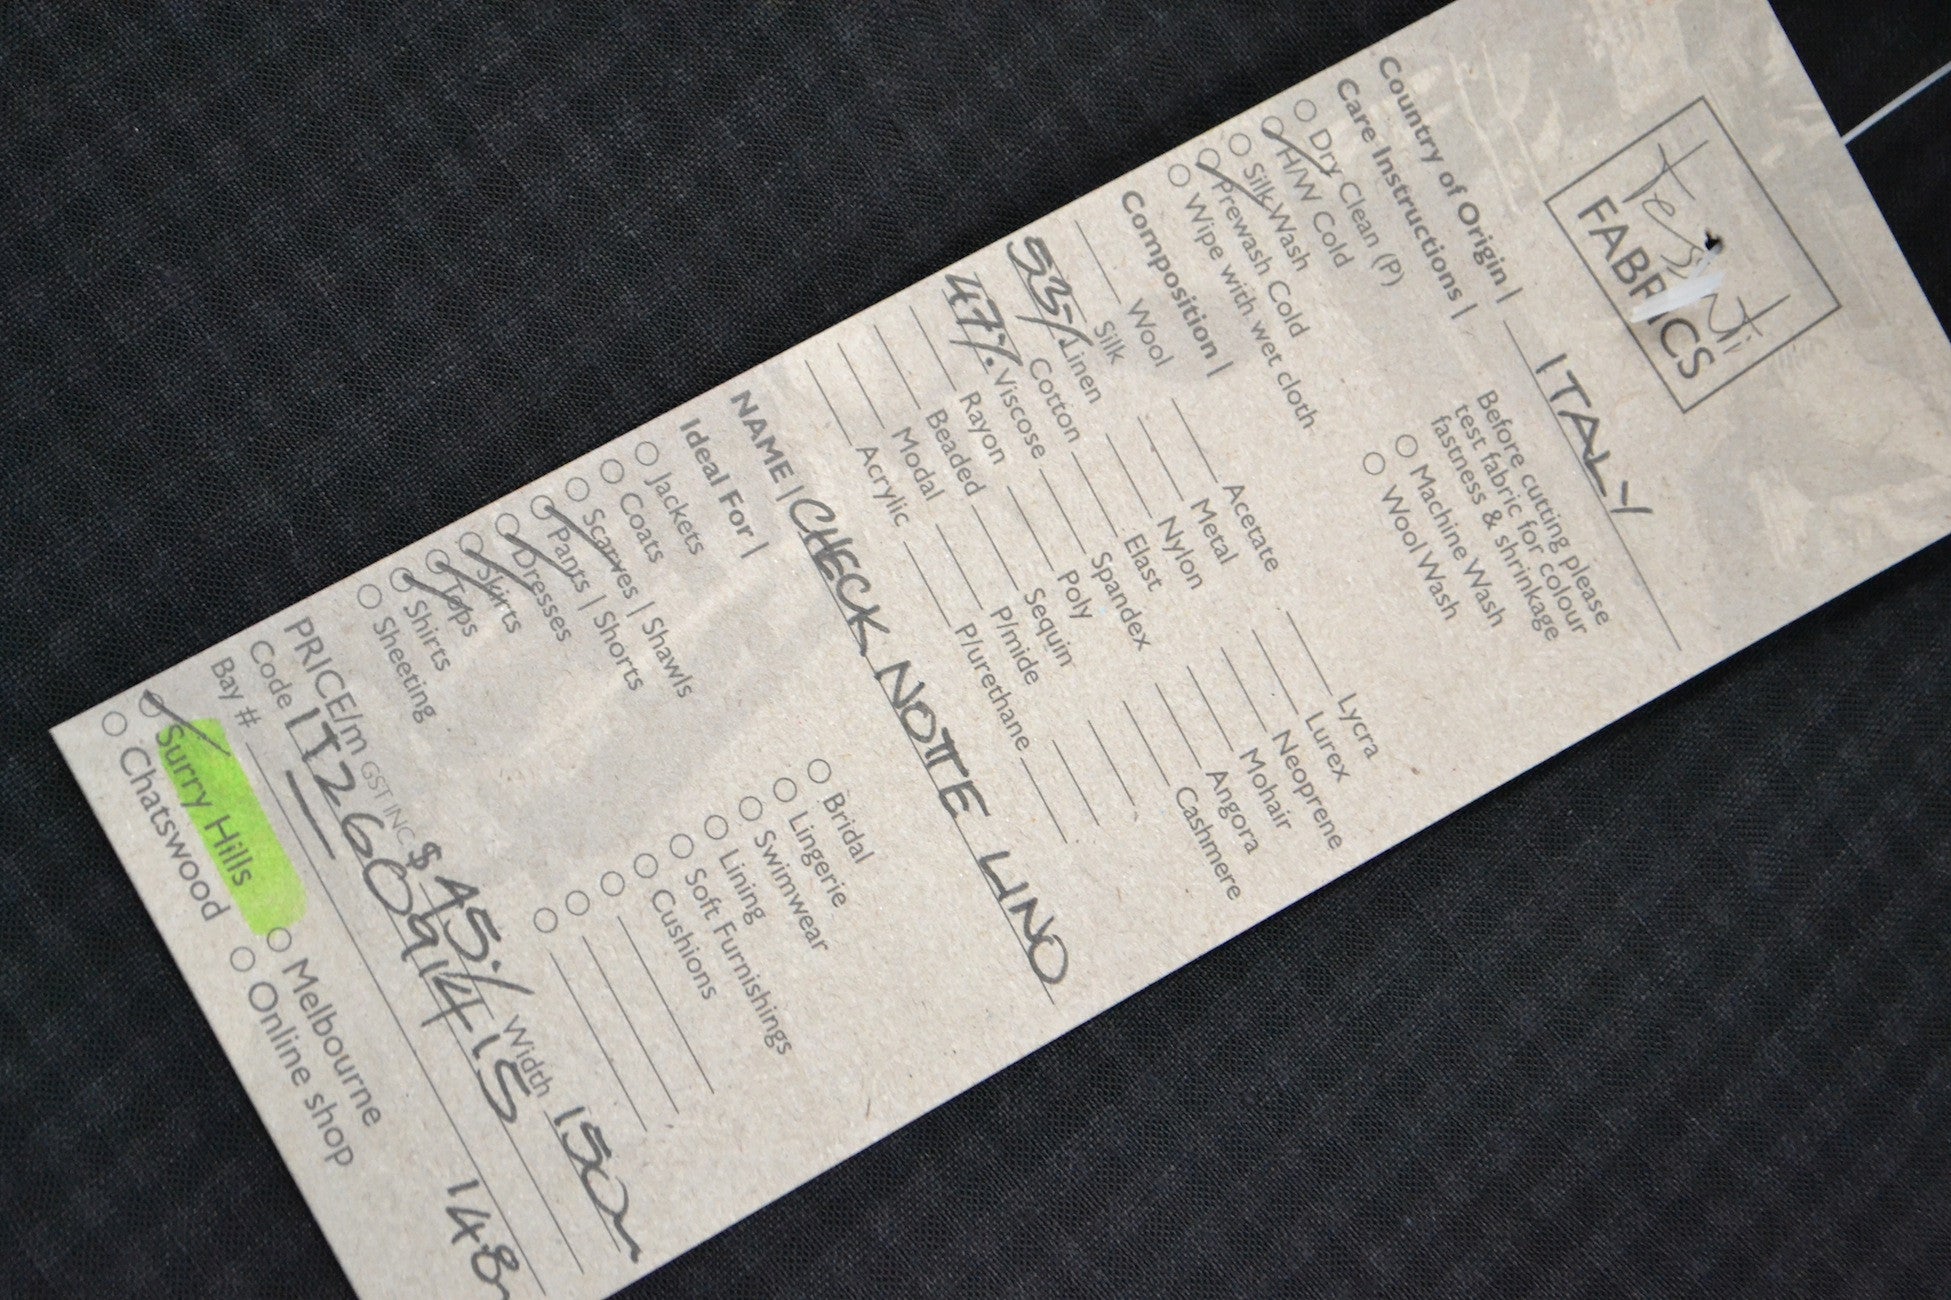 Tessuti
FABRICS
Country of Origin | ITALY
Care Instructions |
Before cutting please
test fabric for colour
fastness & shrinkage
Dry Clean (P)
H/W Cold
Silk Wash
Prewash Cold
Wipe with wet cloth
Machine Wash
Wool Wash
Composition |
Wool Acetate Lycra
Silk Metal Lurex
53% Linen Nylon Neoprene
Cotton Elast Mohair
47% Viscose Spandex Angora
Rayon Poly Cashmere
Beaded Sequin
Modal P/mide
Acrylic P/urethane
NAME | CHECK NOTTE LINO
Ideal For |
Jackets Bridal
Coats Lingerie
Scarves | Shawls Swimwear
Pants | Shorts Lining
Dresses Soft Furnishings
Skirts Cushions
Tops
Shirts
Sheeting
PRICE/m GST INC. $ 45./ Width 150
Code IT26091415
Bay # 148
Surry Hills Melbourne
Chatswood Online shop